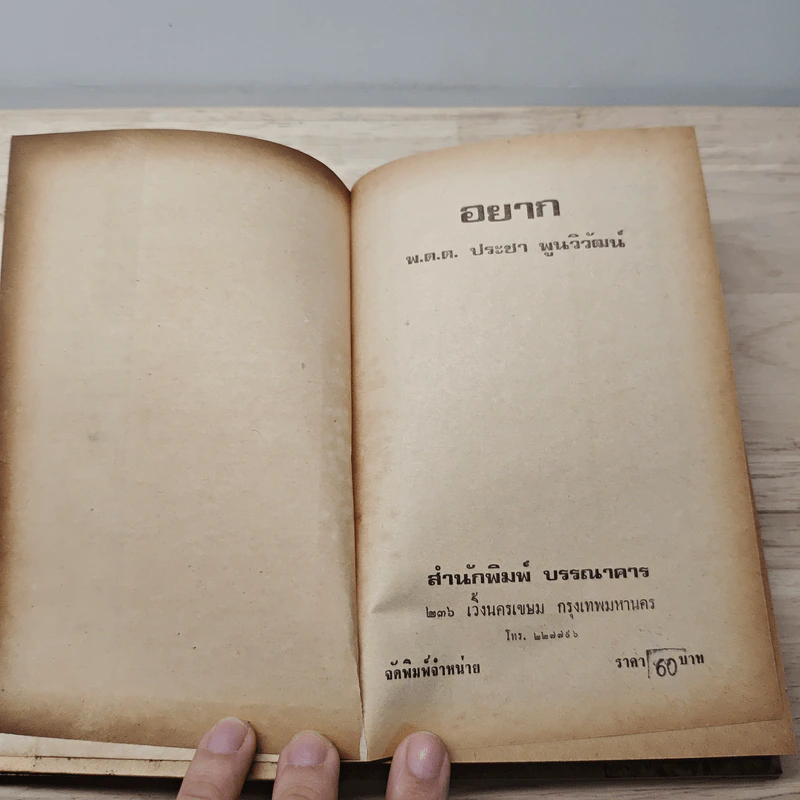 อยาก
พ.ต.ต. ประชา พูนวิวัฒน์
สำนักพิมพ์ บรรณาคาร
๒๓๖ เวิ้งนครเขษม กรุงเทพมหานคร
โทร. ๒๒๗๗๙๖
จัดพิมพ์จำหน่าย ราคา 60 บาท